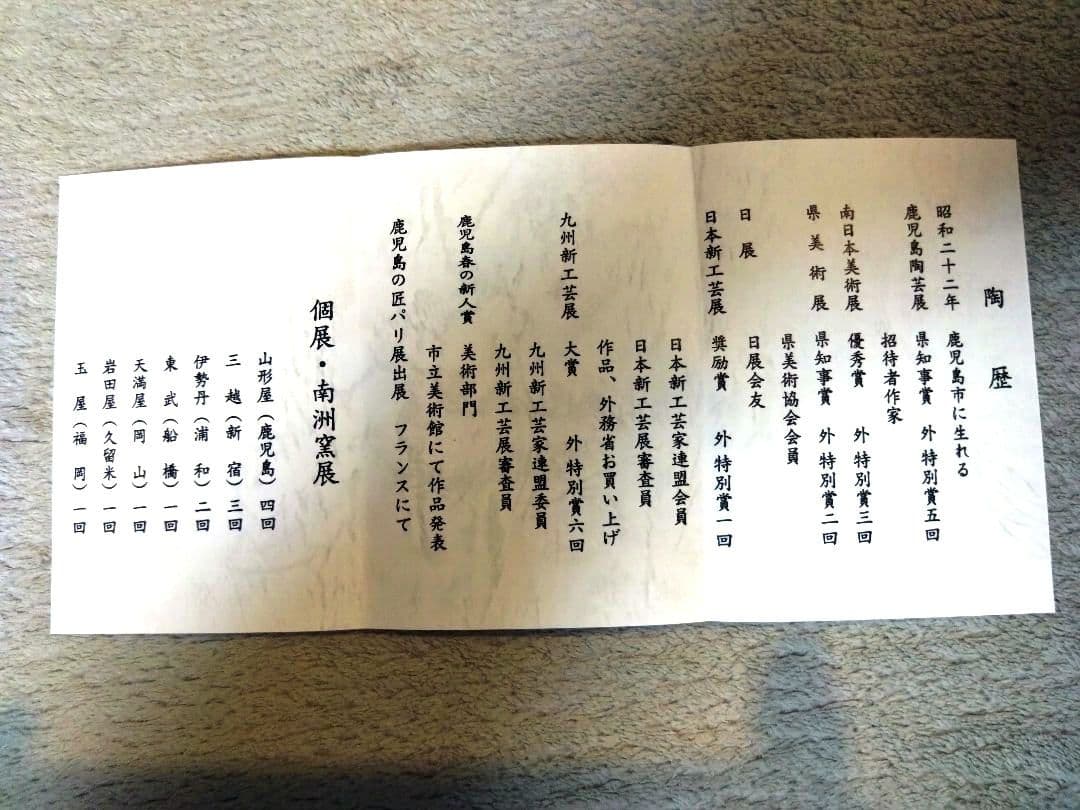 陶歴
昭和二十二年 鹿児島市に生れる
鹿児島陶芸展 県知事賞 外 特別賞五回
招待者作家
南日本美術展 優秀賞 外 特別賞三回
県美術展 県知事賞 外 特別賞二回
県美術協会会員
日展 日展会友
日本新工芸展 奨励賞 外 特別賞一回
日本新工芸家連盟会員
日本新工芸展審査員
作品、外務省お買い上げ
九州新工芸展 大賞 外 特別賞六回
九州新工芸家連盟委員
九州新工芸展審査員
鹿児島春の新人賞 美術部門
市立美術館にて作品発表
鹿児島の匠パリ展出展 フランスにて
個展・南洲窯展
山形屋(鹿児島)四回
三越(新宿)三回
伊勢丹(浦和)二回
東武(船橋)一回
天満屋(岡山)一回
岩田屋(久留米)一回
玉屋(福岡)一回